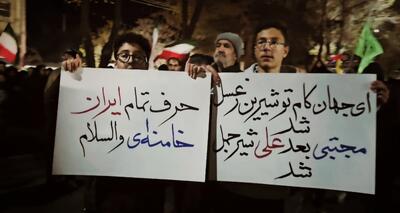 ای جهان کام تو شیرین ز عسل
شد
مجتبی بعد علی شیر جمل
شد
حرف تمام ایران
خامنه‌ای والسلام